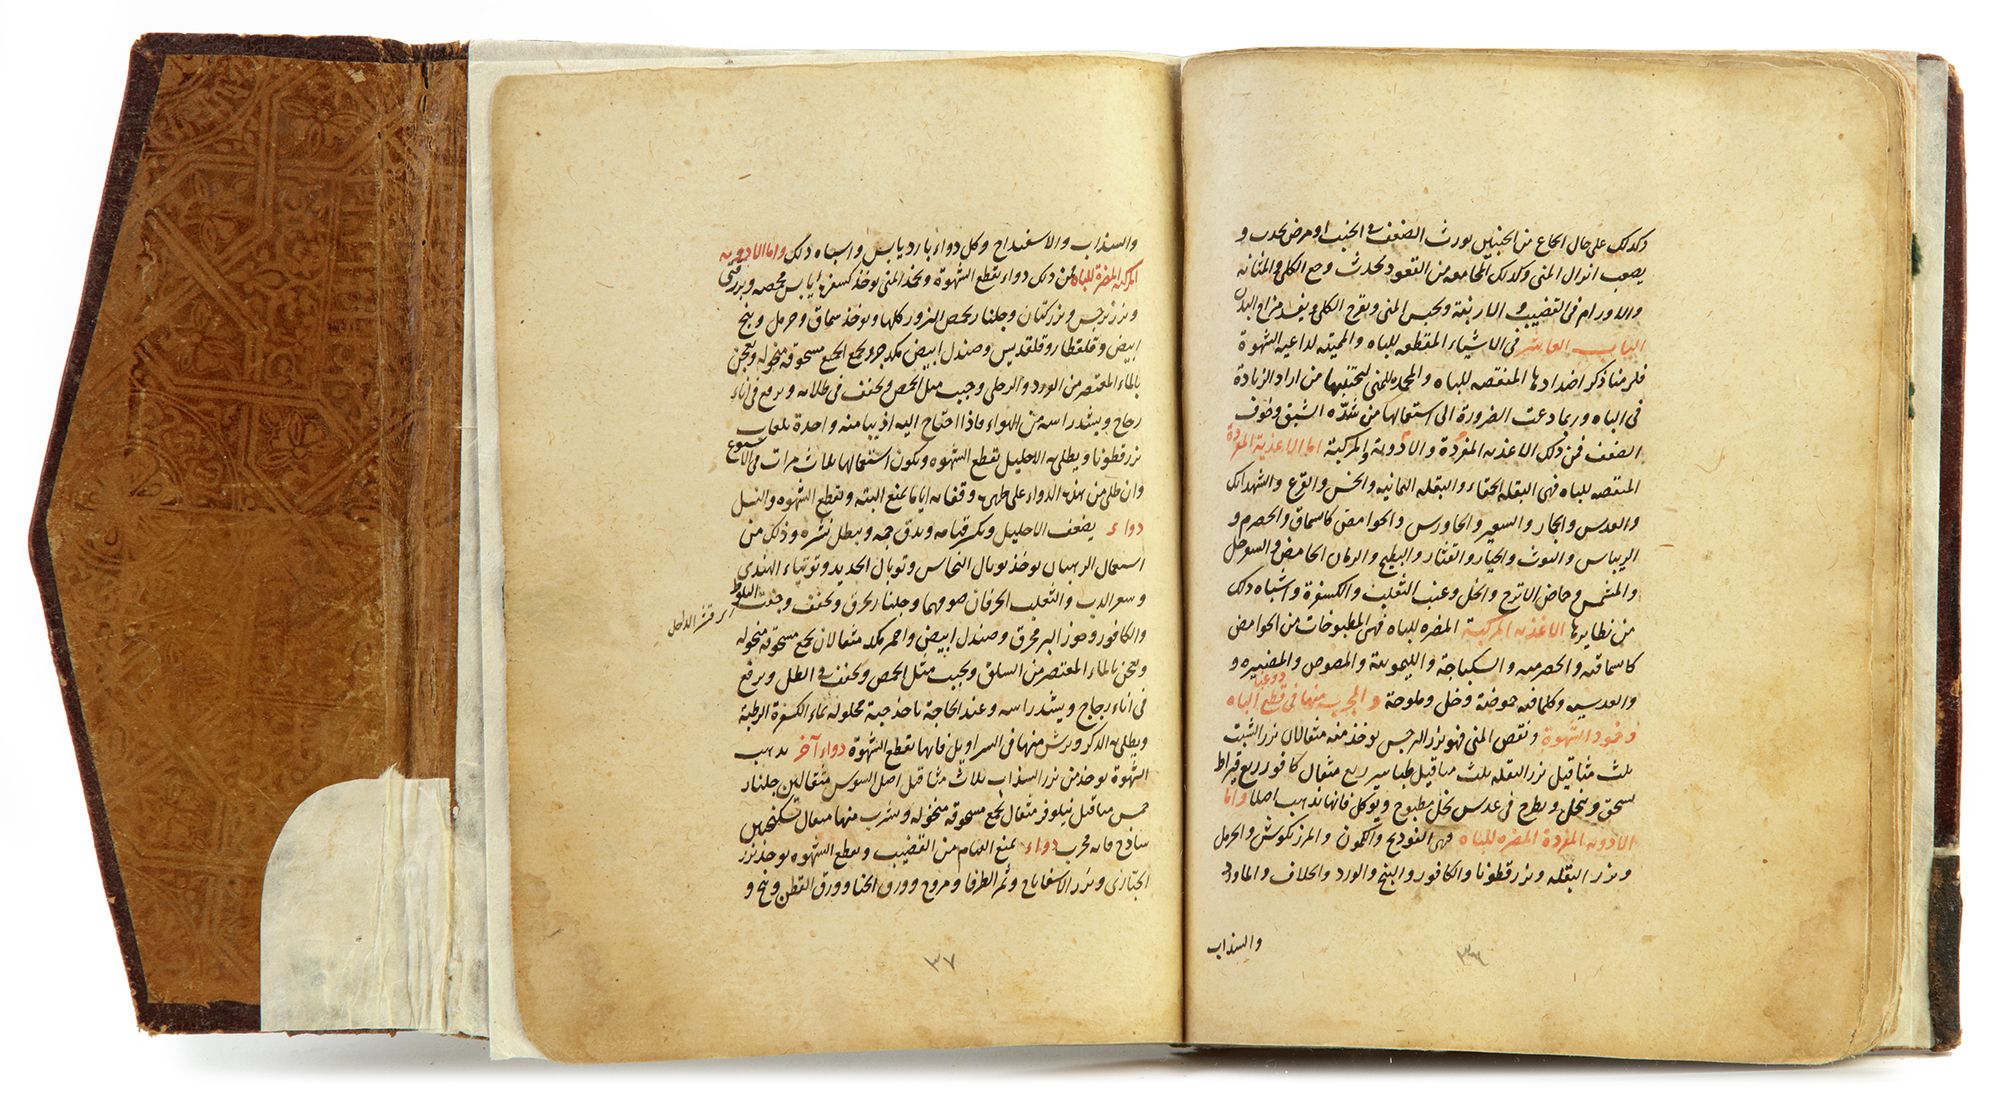 وكذلك على حال الجماع من الجنبين يورث الضعف في الجنب او مرض يحدب و
يصعب انزال المنى وكذلك المجامعه من القعود يحدث وجع الكلى والمثانه
والاورام فى القضيب و الاربية ويحبس المنى ويقرح الكلى ويفسد مزاج البدن
الباب العاشر فى الاشياء المقطعه للباه والميته لداعية الشهوة
فلزمنا ذكر اضدادها المنقصه للباه والمجمده للمنى ليجتنبها من اراد الزيادة
فى الباه وربما دعت الضرورة الى استعمالها من شدّه الشبق وخوف
الضعف فمن ذلك الاغذيه المفردة والادوية والمركبة اما الاغذية المفردة
المنقصه للباه فهى البقله الحمقاء والبقله اليمانيه والخس والقرع والشهدانك
والعدس والجلبار والشعير والجاورس والحوامض كالسماق والحصرم و
الريباس والتوث والخيار والقثاء والبطيخ والرمان الحامض والسفرجل
والمشمش وحماض الاترج والخل وعنب الثعلب والكسفرة واشباه ذلك
من نظايرها الاغذيه المركبة المضره للباه فهى المطبوخات من الحوامض
كالسماقيه والحصرميه والسكباجة والليمونية والمصوص والمضيره و
والعدسيه وكلما فيه حموضة وخل وملوحة والمجرب منها فى قطع الباه
وخمود الشهوة ونقص المنى فهو بزر النرجس يوخذ منه مثقالان بزر الشبت
ثلث مثاقيل بزر البقله ثلث مثاقيل طباشير ربع مثقال كافور ربع قيراط
يسحق وينخل ويطرح فى عدس بخل مطبوخ ويوكل فانها يذهب اصلا واما
الادويه المفردة المضره للباه فهى الفودنج والكمون والمرزنكوش والحرمل
وبزر البقله وبزر قطونا والكافور والبنج والورد والخلاف والماورد
والسذاب
٣٦
والسذاب والاسفيداج وكل دواء بارد يابس واشباه ذلك واما الادويه
المركبه المضرة للباه فمن ذلك دواء يقطع الشهوة ويجمد المنى يوخذ كسفرة يابس محمصه وبزر
وبزر نرجس وبزر كتان وجلنار يحمص البزور كلها ويوخذ سماق وحرمل وبنج
ابيض وقلقطار وقلقديس وصندل ابيض مكد جزو يجمع الجميع مسحوقه منخوله ويعجن
بالماء المعتصر من الورد والرجله ويحبب مثل الحمص ويجفف فى ظل ويرفع فى اناء
زجاج ويشد راسه من الهواء فاذا احتاج اليه اذيب منه واحدة بلعاب
بزر قطونا ويطلى به الاحليل يقطع الشهوه ويكون استعمالها ثلاث مرات فى الاسبوع
وان طلى من هذا الدواء على ظهره وقفاه اياما يمنع البته ويقطع الشهوه والنسل
دواء يضعف الاحليل ويكسر قيامه ويدق حجمه ويبطل نشره وذلك من
استعمال الرهبان يوخذ توبال النحاس وتوبال الحديد وتوتياء الهندى
وشعر الدب والثعلب وجلنار يحرق ويجفف وجفت البلوط
اى قشر الداخل
والكافور وصندل ابيض واحمر مكد مثقالان يجمع مسحوقه منخوله
ويعجن بالماء المعتصر من السلق ويحبب مثل الحمص ويجفف فى الظل ويرفع
فى اناء زجاج ويشد راسه وعند الحاجة ياخذ حبة محلوله بماء الكسفرة الرطبة
ويطلى به الذكر ويرش منها فى السراويل فانها تقطع الشهوة دواء آخر يذهب
الشهوة يوخذ من بزر السذاب ثلاث مثاقيل اصل السوس مثقالين جلنار
خمس مثاقيل نيلوفر مثقال يجمع مسحوقه منخوله ويشرب منها مثقال بسكنجبين
ساذج فانه مجرب دواء يمنع القيام من القضيب ويقطع الشهوه يوخذ بزر
الخبازى وبزر الاسفاناخ وثمر الطرفا ومروخ وورق الحنا وورق القطن وبنج و
٣٧